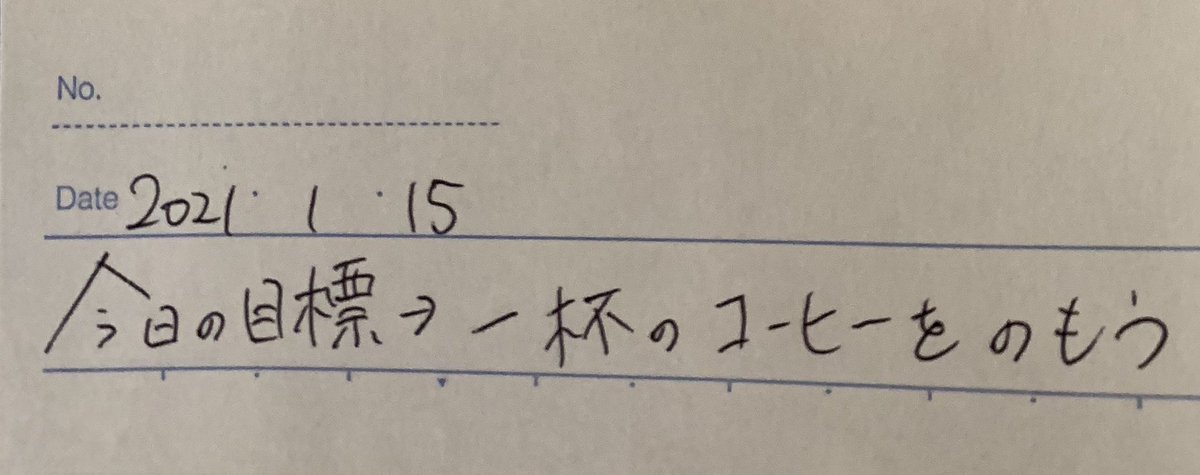 No.
Date 2021・1・15
今日の目標→一杯のコーヒーをのもう